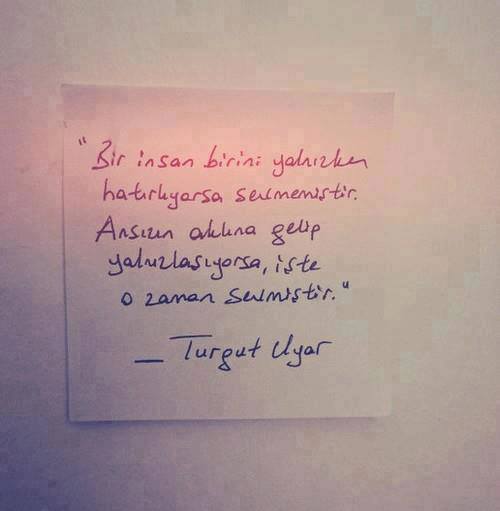 "Bir insan birini yalnızken
hatırlıyorsa sevmemiştir.
Ansızın aklına gelip
yalnızlaşıyorsa, işte
o zaman sevmiştir."
— Turgut Uyar